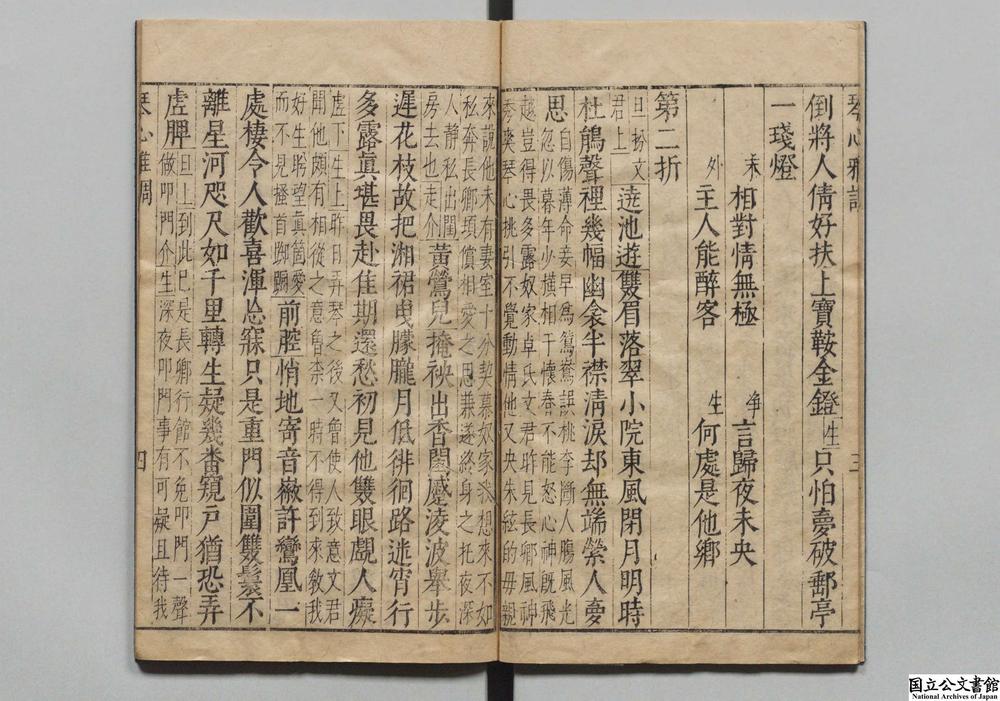 倒將人倩好扶上寶鞍金鐙生只怕夢破郵亭
一琖燈
末相對情無極 淨言歸夜未央
外主人能醉客 生何處是他鄉
第二折
旦扮文
君上遶池遊雙眉落翠小院東風閉月明時
杜鵑聲裡幾幅幽衾半襟清淚却無端縈人夢
思自傷薄命妾早爲鴛鴦誤桃李斷人腸風光
忽以暮年少橫相干懷春不能怨心神旣飛
越豈得畏多露奴家卓氏文君昨見長卿風神
秀爽琴心挑引不覺動情他又央朱絃的母親
來說他未有妻室十分契慕奴家我想來不如
私奔長卿頃償相愛之思兼遂終身之托夜深
人静私出閨
房去也走介黃鶯兒掩袂出香閨蹙淩波舉步
遲花枝故把湘裙曳朦朧月低徘徊路迷宵行
多露眞堪畏赴佳期還愁初見他雙眼覷人癡
虛下生上昨日弄琴之後又曾使人致意文君
聞他頗有相從之意魯柰一時不得到來敎我
好生盻望眞箇愛
而不見搔首踟躕前腔悄地寄音徽許鸞鳳一
處棲令人歡喜渾忘寐只是重門似圍雙鬟不
離星河咫尺如千里轉生疑幾番窺戸猶恐弄
虛脾旦上到此已是長卿行館不免叩門一聲
做叩門介生深夜叩門事有可疑且待我
琴心雅調 四
国立公文書館
National Archives of Japan